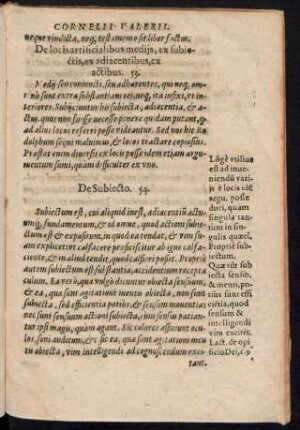 CORNELII VALERII.
neque vindicta, neq; testamento fit liber factus.
De locis artificialibus medijs, ex subie-
ctis, ex adiacentibus, ex
actibus. 53.
Medij seu coniuncti, seu adhærentes, qui neq; om-
nino sunt extra substantiam rei, neq; ita infixi, vt in-
teriores. Subijciuntur his subiecta, adiacentia, & a-
ctus. quos non sursùs necesse ponere quidam putant, &
ad alios locos referri posse videantur. Sed nos hic Ro-
dolphum sequi maluimus, & locos tractare copiosius.
Præstat enim diuersis ex locis posse idem etiam argu-
mentum sumi, quàm difficulter ex vno.
De Subiecto. 54.
Subiectum est, cui aliquid inest, adiacentiū actuū-
mq; fundamentum, & id omne, quod actioni subie-
ctum est & expositum, in quod ea tendat, & vim su-
am explicet
re calfacere corpus, aut affi-
cere ignominia, & in aliud tendit, quod calfieri aut affici. Propriè
autem subiectum est substantia, accidentium recepta
culum. Ea verò, quæ vulgò dicuntur obiecta sensuum,
& ea, quæ sunt agitationi mentis obuia, non sunt
subiecta, sed efficientis potius, & sensuum momenta:
nec sunt sensuum actioni subiecta, imò sensus patiun-
tur ipsi magis, quàm agant. Sic colores afficiunt ocu-
los, soni auditum, & sic ea, quæ sunt agitationi men-
tis obiecta, vim intelligendi ad cognoscendum exci-
tant.
Lōgè vtilius
est ad inue-
niendū varijs
è locis idē
argu. posse
duci, quàm
singula tan-
tùm in sin-
gulis quæri.
Propriè sub-
iectum.
Quæ vūt sub
iecta sensib.
& menti, po-
tius sunt effi-
cientia, quòd
sensum &
intelligendi
vim excitēt.
Lact. de opi-
ficio Dei, c. 9